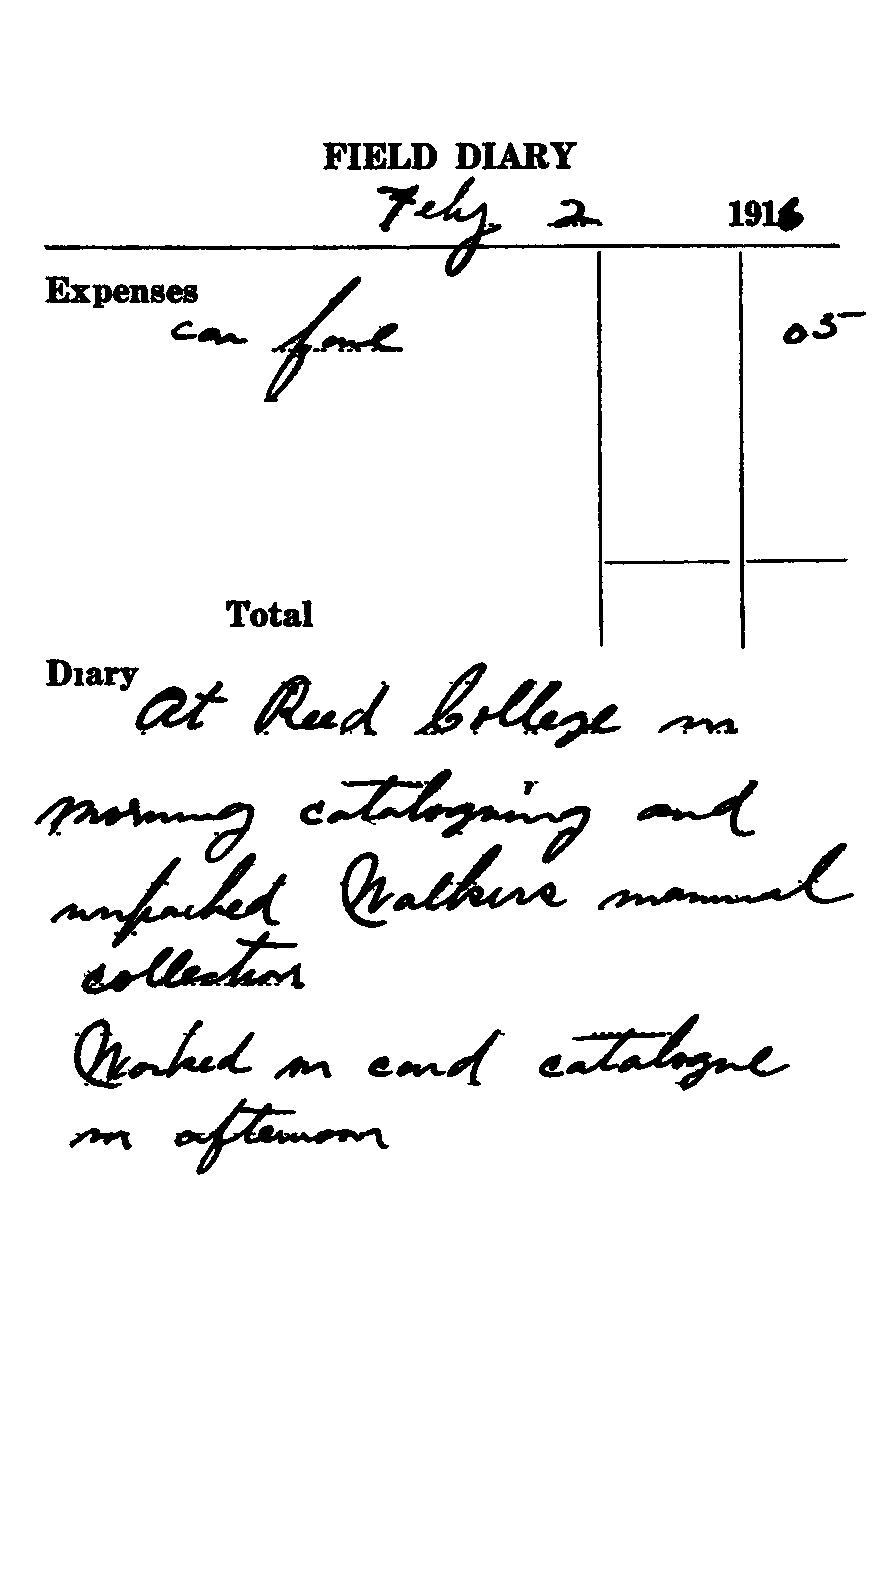 FIELD DIARY
Feby 2 1916
Expenses
car fare 05
Total
Diary
At Reed College in
morning cataloguing and
unpacked Walkers mammal
collection
Worked on card catalogue
in afternoon